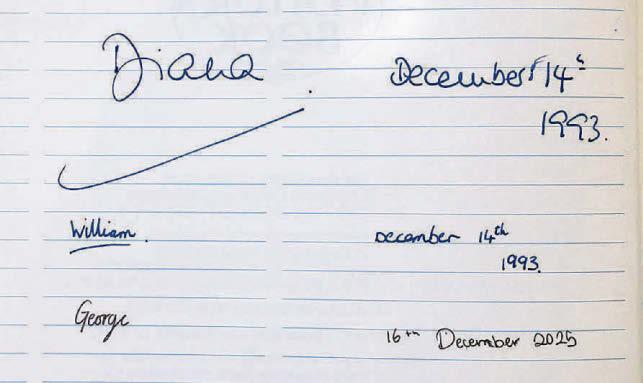 Diana December 14th
1993.
William. December 14th
1993.
George 16th December 2025